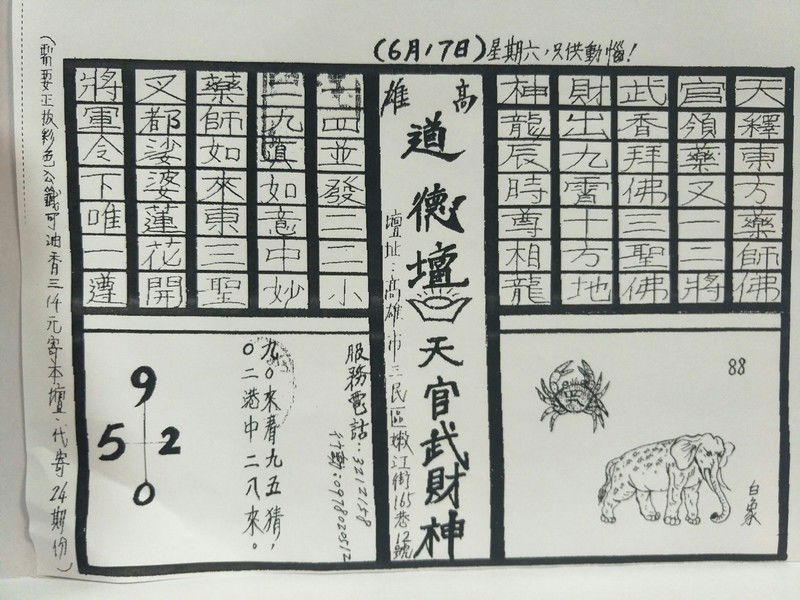 (6月17日)星期六,只供動惱!
天釋東方藥師佛
官領藥叉一二將
武香拜佛三聖佛
財出九霄十方地
神龍辰時尊相龍
高雄
道德壇
天官武財神
壇址:高雄市三民區嫩江街165巷12號
四並發二二小
九 如意中妙
藥師如來東三聖
叉都娑婆蓮花開
將軍令下唯一遵
88
白象
服務電話:3212158
行動:0978020512
九0來春九五猜,
0二港中二八來。
9
5 2
0
(需要正版彩色公籤可油香三仟元寄本壇.代寄24期份)